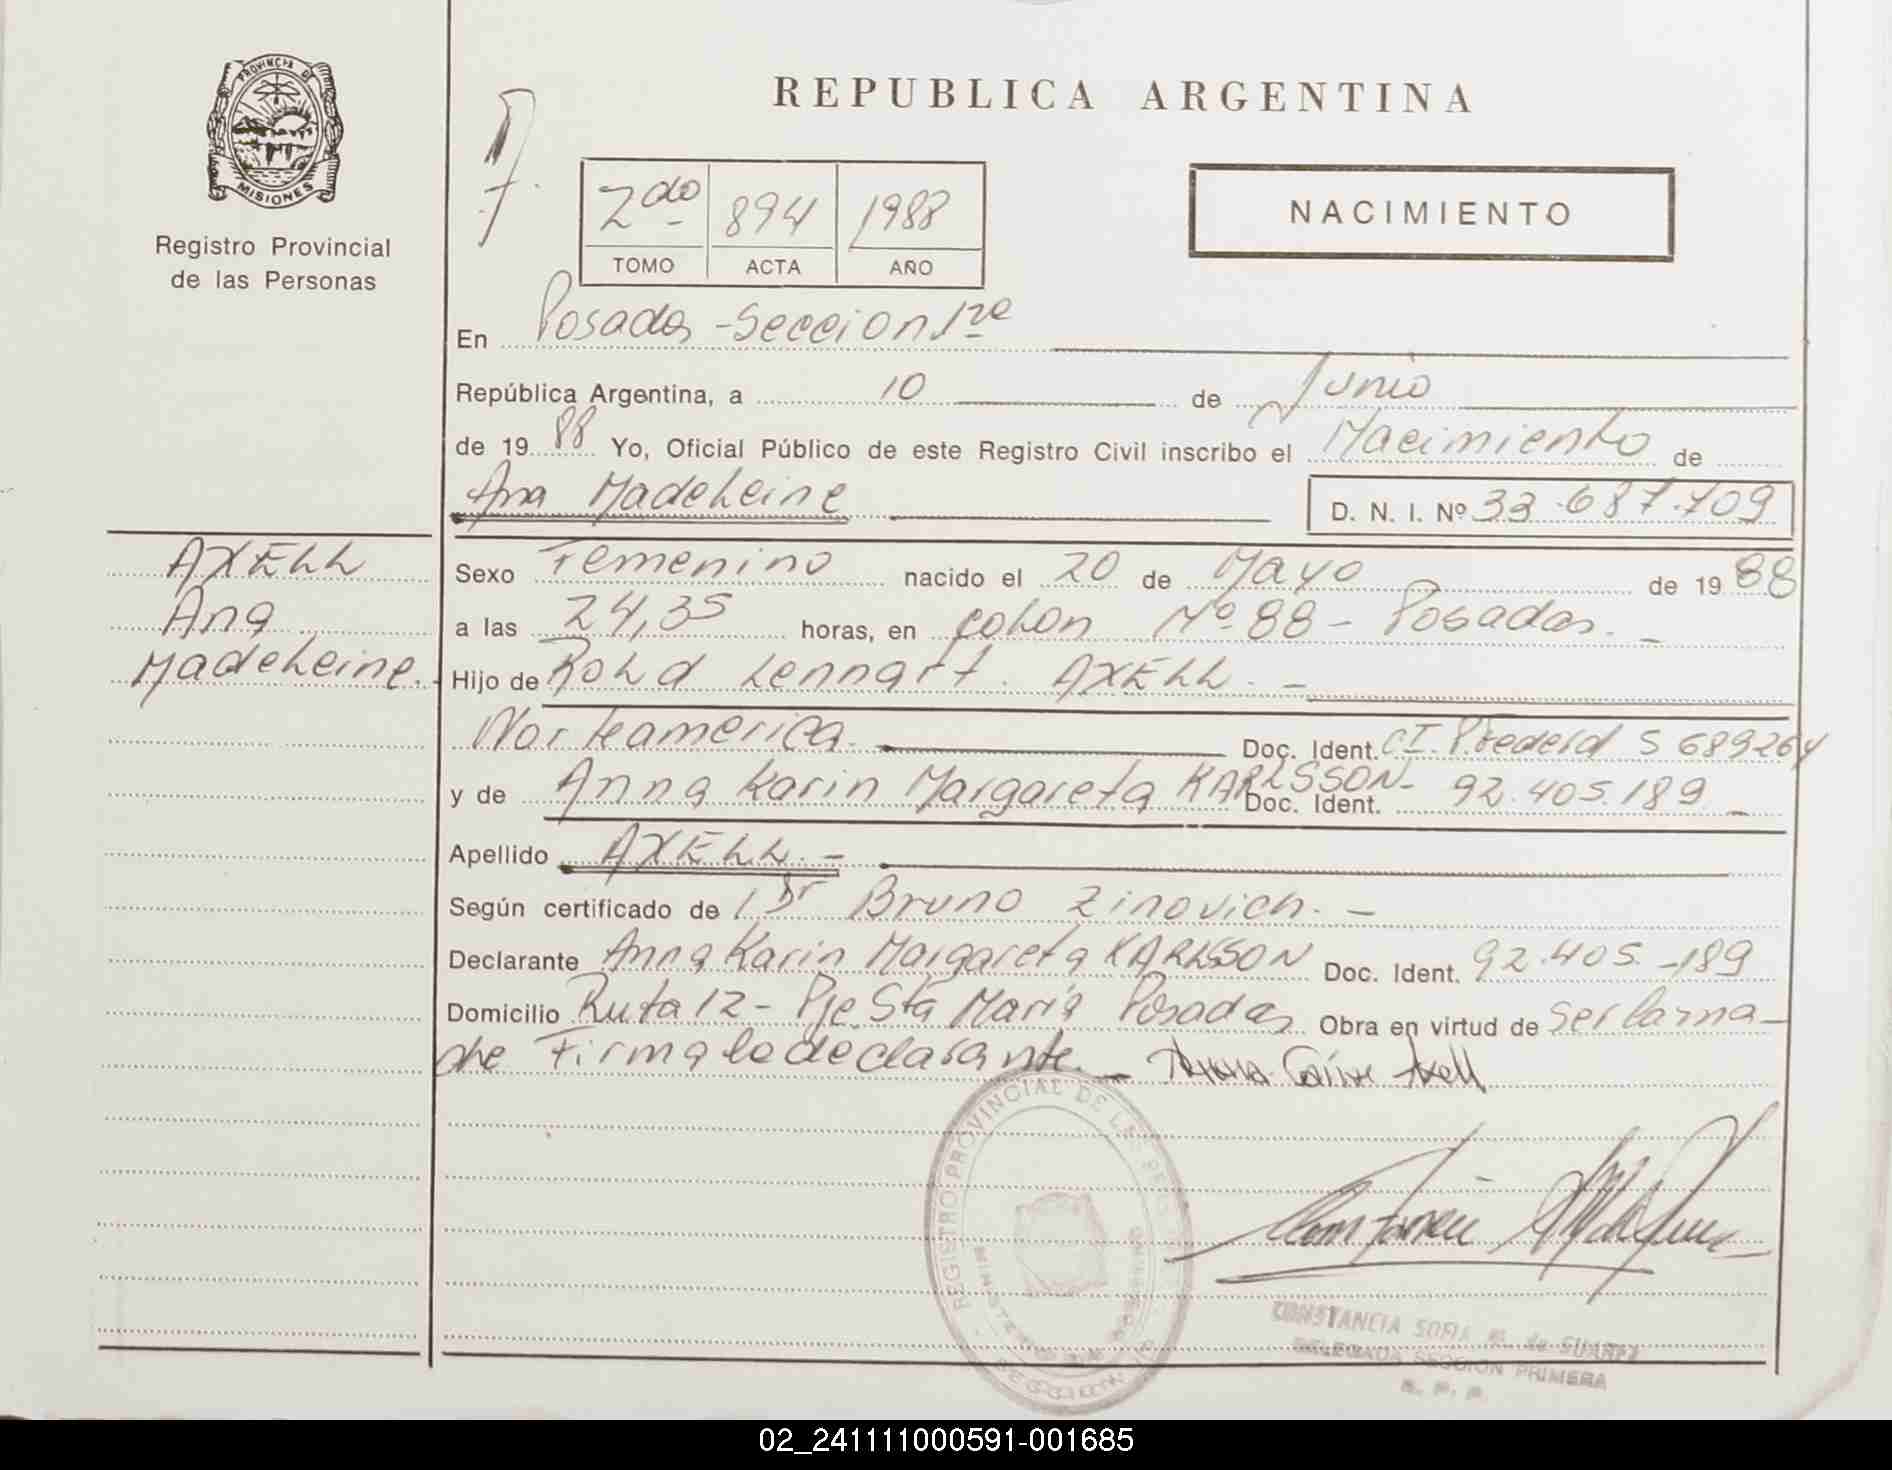 PROVINCIA DE
MISIONES
Registro Provincial
de las Personas
REPUBLICA ARGENTINA
2do 894 1988
TOMO ACTA AÑO
NACIMIENTO
En Posadas - Seccion 1ra
República Argentina, a 10 de Junio
de 1988 Yo, Oficial Público de este Registro Civil inscribo el Nacimiento de
Ana Madeleine D. N. I. Nº 33.687.709
AXELL
Ana
Madeleine.
Sexo Femenino nacido el 20 de Mayo de 1988
a las 24,35 horas, en Colon Nº 88 - Posadas. -
Hijo de Rold Lennart. AXELL. -
Norteamerica. Doc. Ident. CI. P. Federal 5689264
y de Anna Karin Margareta KARLSSON- Doc. Ident. 92.405.189 -
Apellido AXELL. -
Según certificado de Dr Bruno Zinovich. -
Declarante Anna Karin Margareta KARLSSON Doc. Ident. 92.405.-189
Domicilio Ruta 12 - Pje Sta María Posadas Obra en virtud de ser la ma-
dre Firma la declarante. - Axell
REGISTRO PROVINCIAL DE LAS
CONSTANCIA SOFIA M. de SUAREZ
DELEGADA SECCION PRIMERA
R. P. P.
02_241111000591-001685